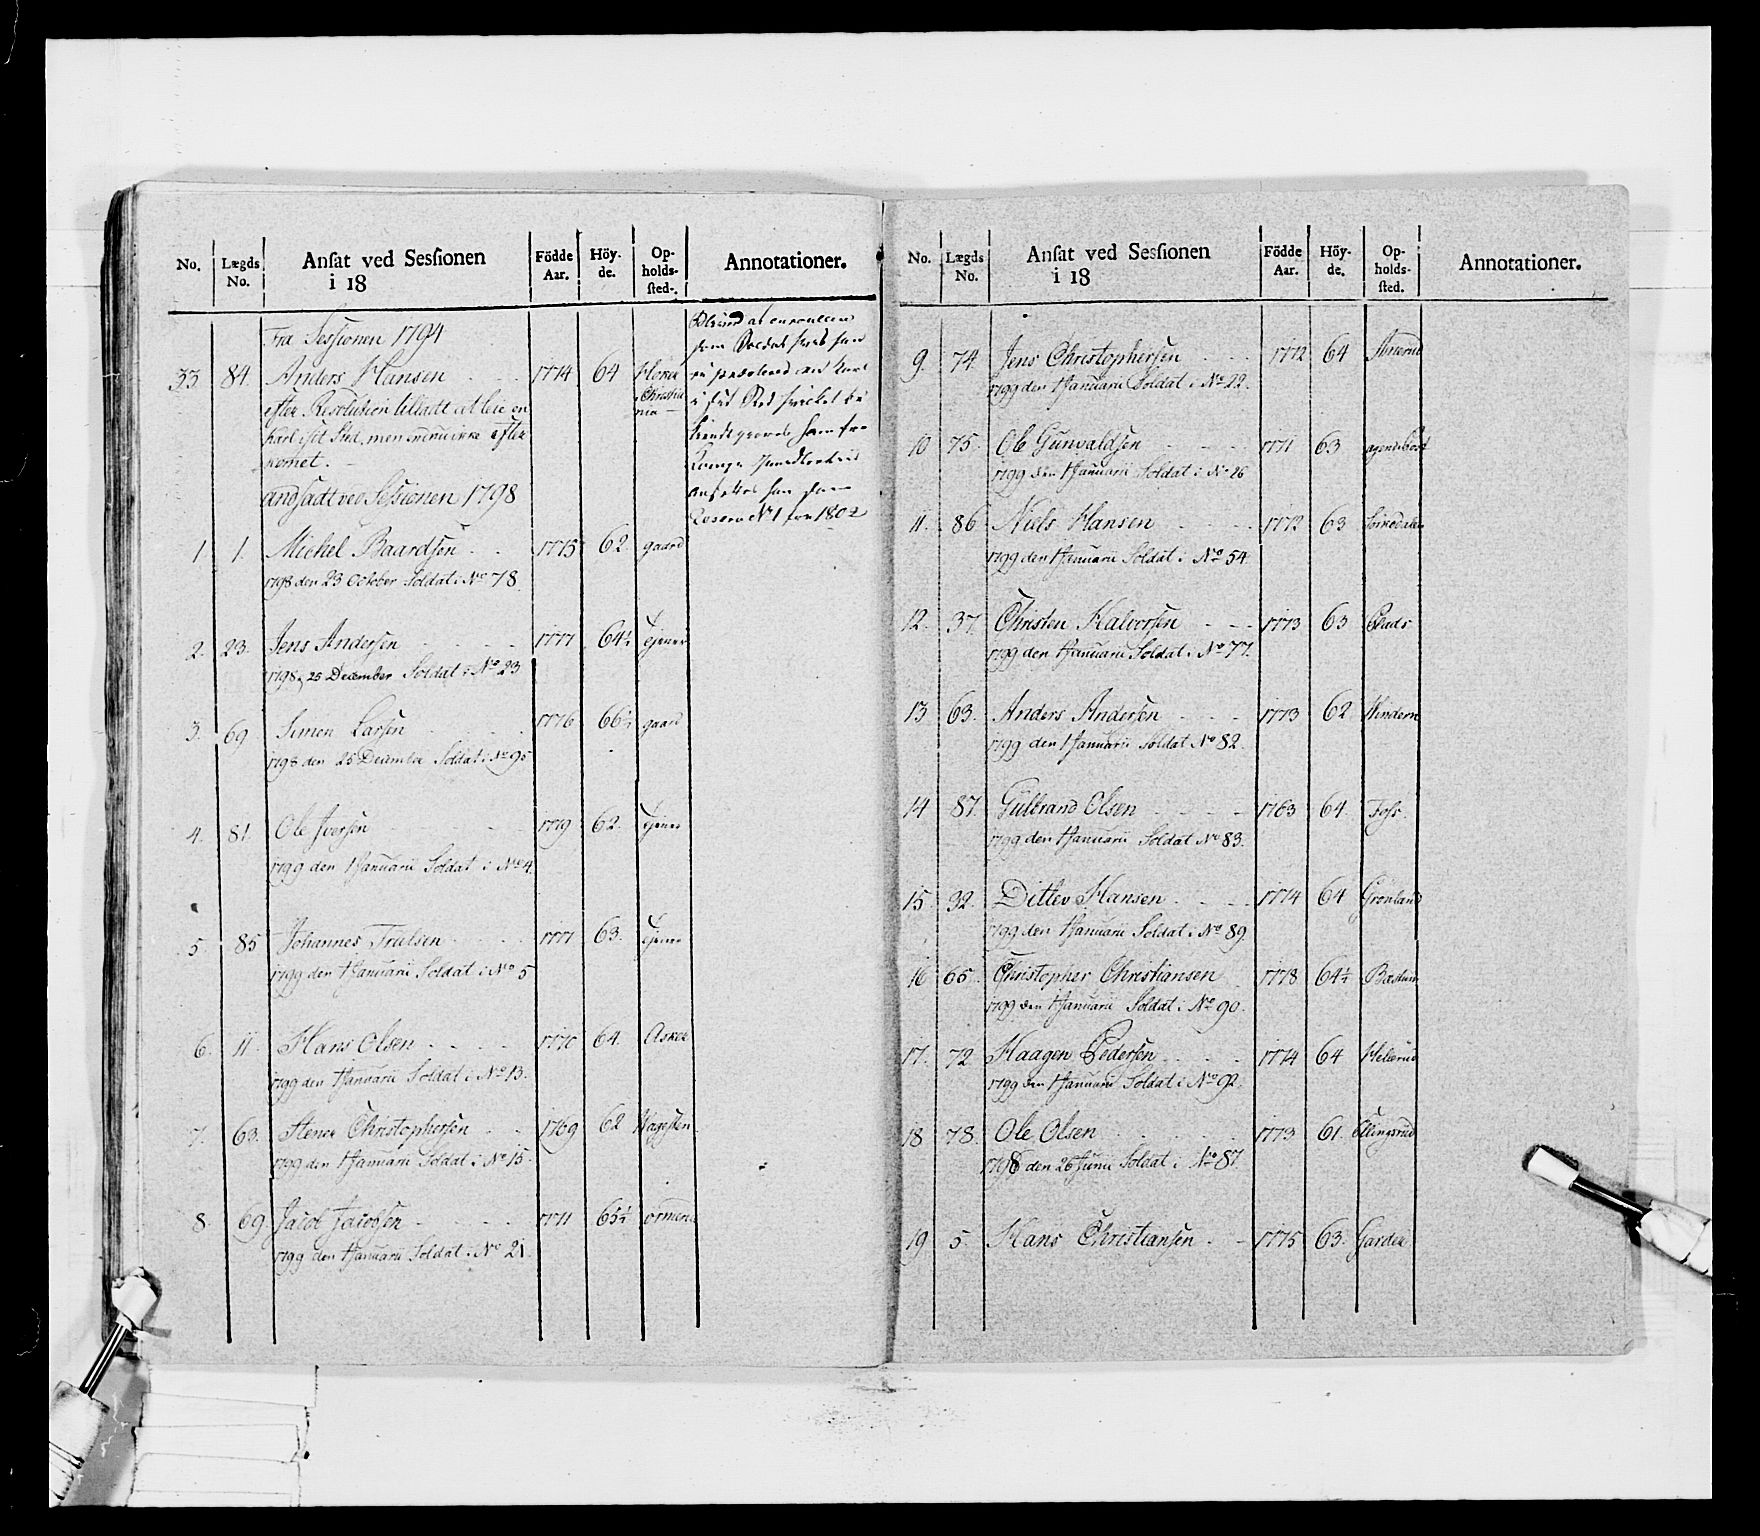 No. Lægds No. Ansat ved Sessionen i 18 Födde Aar. Höyde. Opholdssted. Annotationer.
Fra Sessionen 1794
33 84. Anders Hansen 1774 64 Christiania
efter Resolution tilladt at leie en
Karl i sit Sted, men endnu ikke efter
komet.
som Soldat
i sit Sted
Reserv No 1 for 1802
andsadt ved Sessionen 1798
1 1. Michel Baardsen 1775 62 gaard
1798 den 23 October Soldat i No 78.
2. 23. Jens Andersen 1777 64½ tjener
1798, 25 December Soldat i No 23
3. 69 Simon Larsen 1776 66½ gaard
1798 den 25 December Soldat i No 95
4. 81 Ole Iversen 1779 62. tjener
1799 den 1 Januarii Soldat i No 4.
5. 85 Johannes Trulsen 1777 63. tjener
1799 den 1 Januarii Soldat i No 5
6. 11. Hans Olsen 1770 64. Asker
1799 den 1 Januarii Soldat i No 13.
7. 63. Stener Christophersen 1769 62
1799 den 1 Januarii Soldat i No 15.
8. 69. Jacob Jacobsen 1771 65½
1799 den 1 Januarii Soldat i No 21.
No. Lægds No. Ansat ved Sessionen i 18 Födde Aar. Höyde. Opholdssted. Annotationer.
9. 74. Jens Christophersen 1772 64
1799 den 1 Januarii Soldat i No 22.
10 75. Ole Gunvaldsen 1771 63
1799 den 1 Januarii Soldat i No 26
11. 86 Niels Hansen 1772 63 Sørkedalen
1799 den 1 Januarii Soldat i No 54.
12. 37. Christen Halvorsen 1773 63
1799 den 1 Januarii Soldat i No 77.
13 63. Anders Andersen 1773 62 Vindern
1799 den 1 Januarii Soldat No 82.
14 87. Gulbrand Olsen 1763 64 Foss.
1799 den 1 Januarii Soldat No 83.
15 32. Ditlev Hansen 1774 64 Grönland
1799 den 1 Januarii Soldat i No 89.
16 65. Christopher Christiansen 1778 64½ Bærum
1799 den 1 Januarii Soldat i No 90.
17. 72 Haagen Pedersen 1774 64 Hellerud
1799 den 1 Januarii Soldat i No 92.
18 78. Ole Olsen 1773 61. Ellingsrud
1798 den 26 Junii Soldat i No 87.
19 5. Hans Christiansen 1775 63. Garder